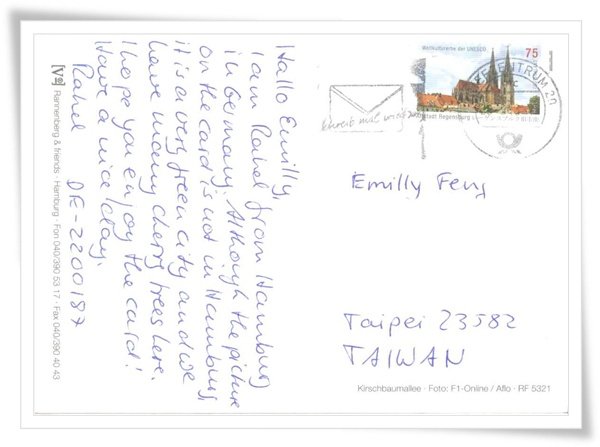 Hallo Emilly,
I am Rahel from Hamburg
in Germany. Although the picture
on the card is not in Hamburg,
it is a very green city and we
have many cherry trees here.
I hope you enjoy the card!
Have a nice day,
Rahel DE-2200187
Rannenberg & friends · Hamburg · Fon 040/390 53 17 · Fax 040/390 40 43
Weltkulturerbe der UNESCO 75
ZENTRUM 20
Schreib mal wieder
stadt Regensburg
Emilly Feng
Taipei 23582
TAIWAN
Kirschbaumallee · Foto: F1-Online / Aflo · RF 5321